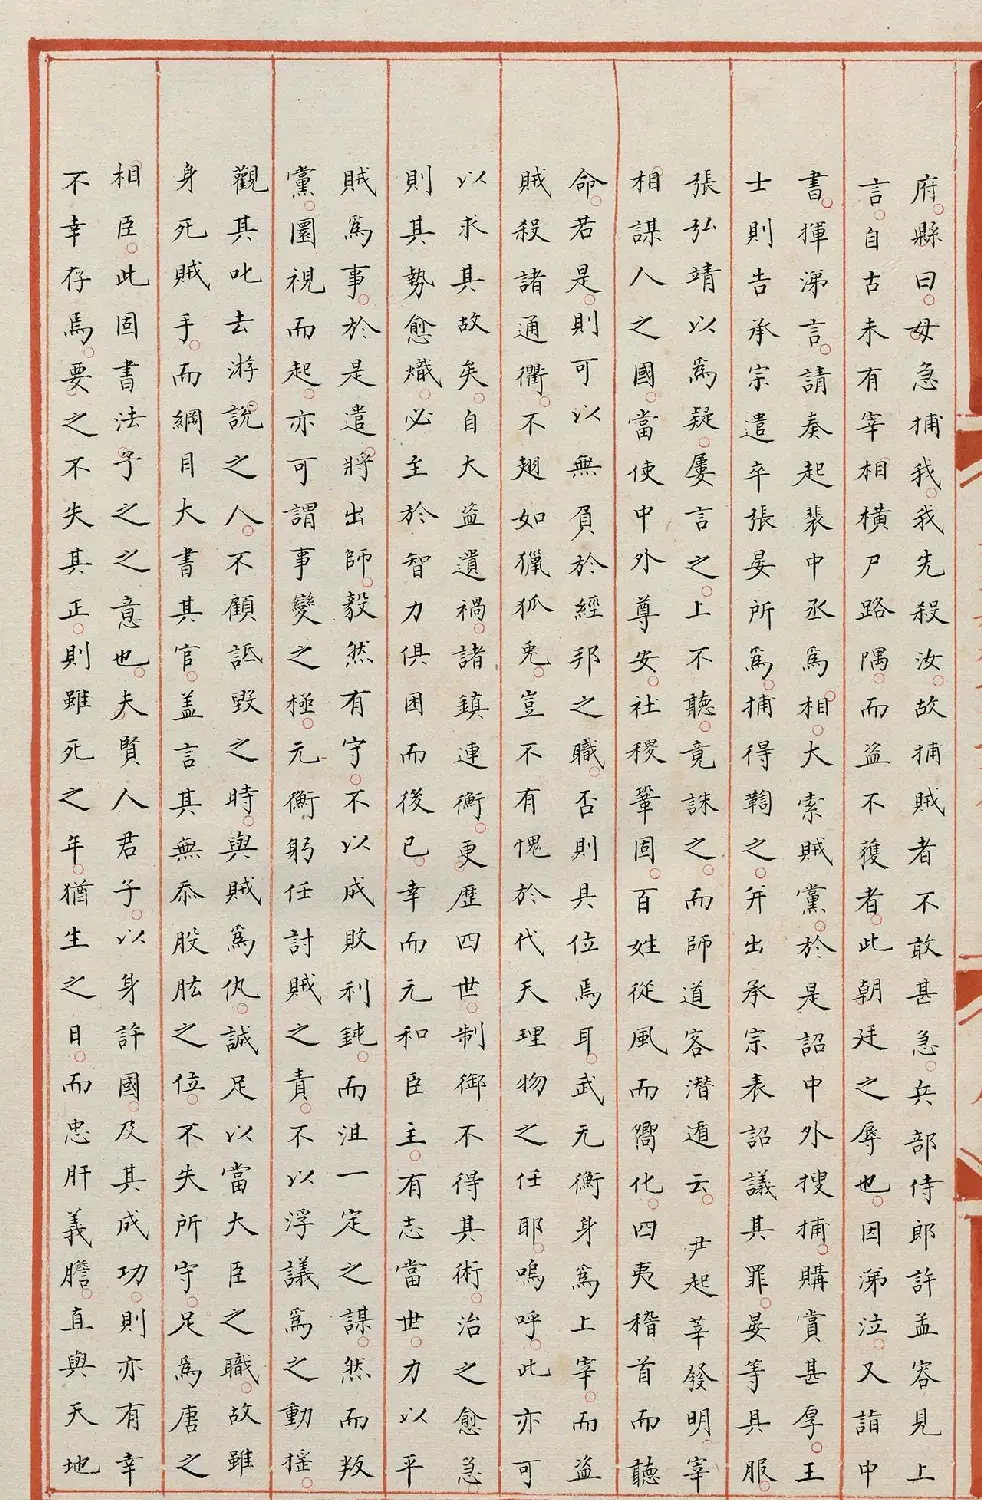 府縣曰。毋急捕我。我先殺汝。故捕賊者不敢甚急。兵部侍郎許孟容見上
言。自古未有宰相橫尸路隅。而盜不獲者。此朝廷之辱也。因涕泣。又詣中
書。揮涕言。請奏起裴中丞爲相。大索賊黨。於是詔中外搜捕。購賞甚厚。王
士則告承宗遣卒張晏所爲。捕得鞫之。并出承宗表詔議其罪。晏等具服。
張弘靖以爲疑。屢言之。上不聽。竟誅之。而師道客潛遁云。尹起莘發明。宰
相謀人之國。當使中外尊安。社稷鞏固。百姓從風而嚮化。四夷稽首而聽
命。若是。則可以無負於經邦之職。否則具位焉耳。武元衡身爲上宰。而盜
賊殺諸通衢。不翅如獵狐兎。豈不有愧於代天理物之任耶。嗚呼。此亦可
以求其故矣。自大盜遺禍。諸鎮連衡。更歷四世。制御不得其術。治之愈急
則其勢愈熾。必至於智力俱困而後已。幸而元和臣主。有志當世。力以平
賊爲事。於是遣將出師。毅然有守。不以成敗利鈍。而沮一定之謀。然而叛
黨。圜視而起。亦可謂事變之極。元衡躬任討賊之責。不以浮議爲之動搖。
觀其叱去游說之人。不顧詆毀之時。與賊爲仇。誠足以當大臣之職。故雖
身死賊手。而綱目大書其官。盖言其無忝股肱之位。不失所守。足爲唐之
相臣。此固書法予之之意也。夫賢人君子。以身許國。及其成功。則亦有幸
不幸存焉。要之不失其正。則雖死之年。猶生之日。而忠肝義膽。直與天地